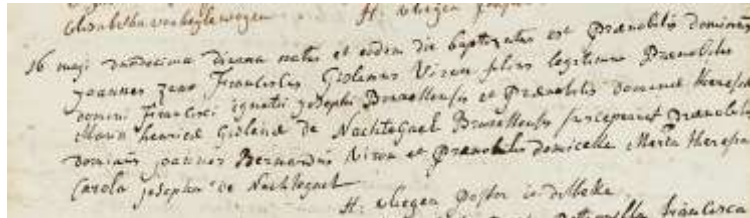 Elisabetha van heylewegen H: vliegen
16 maij duodecima diurna natus et eodem die baptizatus est Prænobilis dominus
joannes Franciscus Gislenus Viron filius legitimus Prænobilis
domini Francisci ignatii josephi Bruxellensis et Prænobilis dominæ theresæ
Maria henrica Gislena de Nachtegael Bruxellensis susceperunt Prænobilis
dominus joannes Bernardus Viron et Prænobilis domicella Maria theresia
Carola josepha de Nachtegael
H: vliegen Pastor in dilbeke
Petronilla francisca